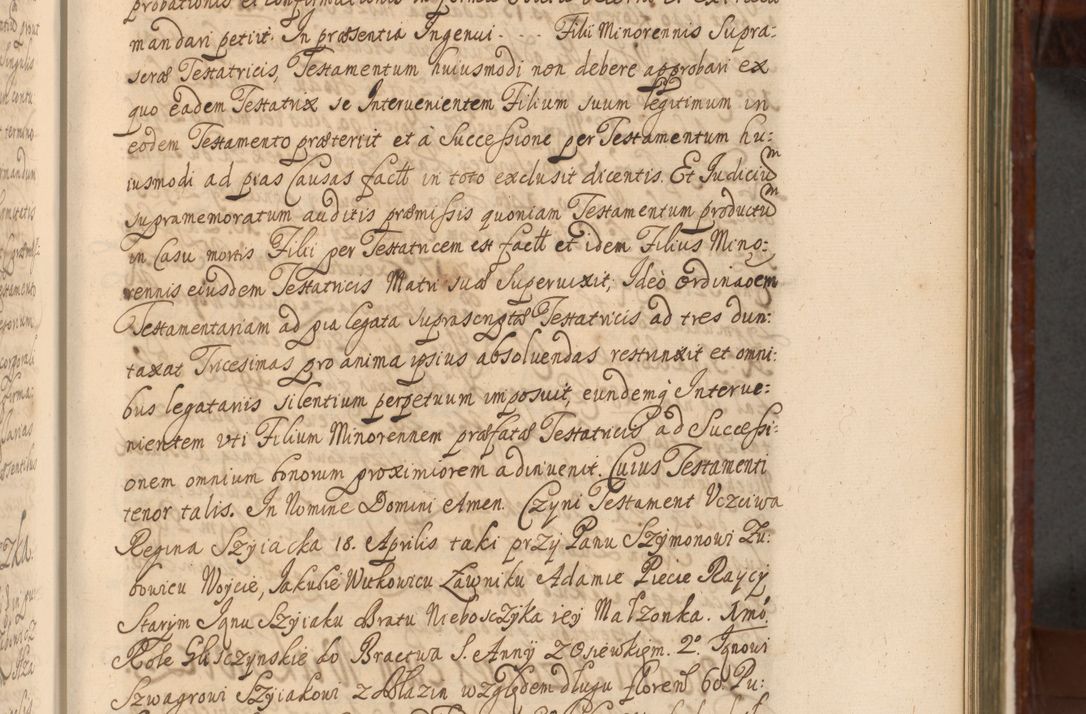 probationis et confirmationis in
mandari petiit. In præsentia Ingenui . . . . Filii Minorennis Supra-
seræ Testatricis, Testamentum huiusmodi non debere approbari ex
quo eadem Testatrix se Intervenientem Filium suum legitimum in
eodem Testamento præteriit et à Successione per Testamentum hu:
iusmodi ad pias Causas fact: in toto exclusit dicentis. Et Iudicium
supramemoratum auditis præmissis quoniam Testamentum productum
in Casu mortis Filii per Testatricem est fact: et idem Filius Mino:
rennis eiusdem Testatricis Matri suæ Supervixit, Ideò ordinaõem
Testamentariam ad pia legata suprascriptæ Testatricis ad tres dun:
taxat Tricesimas pro anima ipsius absolvendas restrinxit et omni:
bus legatariis silentium perpetuum imposuit, eundemq́ Interve:
nientem uti Filium Minorennem præfatæ Testatricis ad Successi:
onem omnium bonorum proximiorem adinvenit. Cuius Testamenti
tenor talis. In Nomine Domini Amen. Czyni Testament Uczciwa
Regina Szyiacka 18. Aprilis taki przy Panu Szymonowi Zu:
bowicu Woycie, Jakubie Witkowicu Ławniku Adamie Piecie Raycy
Starym Janu Szyiaku Bratu Nieboszczyka iey Małzonka. 1mó.
Role Gliszczynskie do Bractwa S. Anny z Osiewkiem. 2º. Janowi
Szwagrowi Szyiakowi z Błazin względem długu floren: 60. Pu: